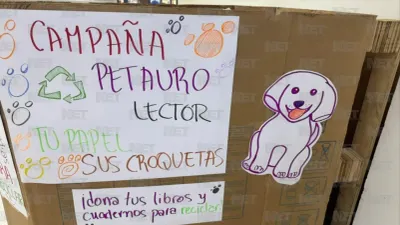 CAMPAÑA
PETAURO
LECTOR
TU PAPEL
SUS CROQUETAS
¡dona tus libros y
cuadernos para reciclar